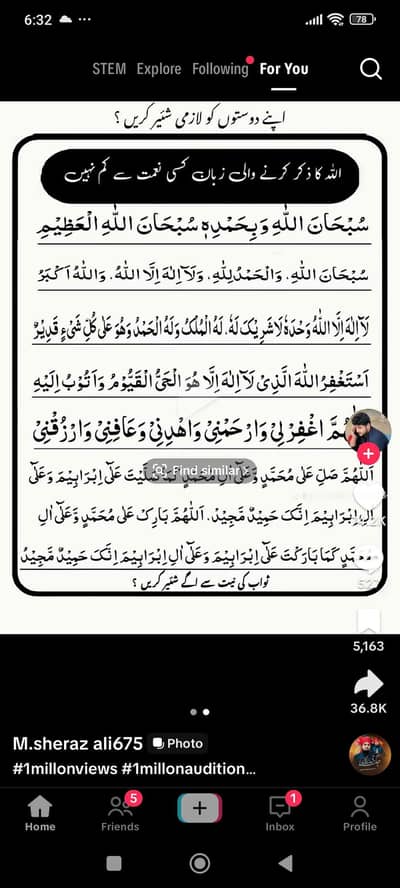 6:32
78
STEM Explore Following For You
اپنے دوستوں کو لازمی شئیر کریں ؟
اللہ کا ذکر کرنے والی زبان کسی نعمت سے کم نہیں
سُبْحَانَ اللّٰهِ وَبِحَمْدِهٖ سُبْحَانَ اللّٰهِ الْعَظِيْمِ
سُبْحَانَ اللّٰهِ، وَالْحَمْدُ لِلّٰهِ، وَلَآ اِلٰهَ اِلَّا اللّٰهُ، وَاللّٰهُ اَكْبَرُ
لَآ اِلٰهَ اِلَّا اللّٰهُ وَحْدَهٗ لَا شَرِيْكَ لَهٗ، لَهُ الْمُلْكُ وَلَهُ الْحَمْدُ وَهُوَ عَلٰى كُلِّ شَیْءٍ قَدِيْرٌ
اَسْتَغْفِرُ اللّٰهَ الَّذِىْ لَآ اِلٰهَ اِلَّا هُوَ الْحَىُّ الْقَيُّوْمُ وَاَتُوْبُ اِلَيْهِ
اغْفِرْلِىْ وَارْحَمْنِىْ وَاهْدِنِىْ وَعَافِنِىْ وَارْزُقْنِىْ
اَللّٰهُمَّ صَلِّ عَلٰى مُحَمَّدٍ وَّعَلٰٓى اٰلِ مُحَمَّدٍ كَمَا صَلَّيْتَ عَلٰٓى اِبْرَاهِيْمَ وَعَلٰٓى
Find similar
اٰلِ اِبْرَاهِيْمَ اِنَّكَ حَمِيْدٌ مَّجِيْدٌ، اَللّٰهُمَّ بَارِكْ عَلٰى مُحَمَّدٍ وَّعَلٰٓى اٰلِ
مُحَمَّدٍ كَمَا بَارَكْتَ عَلٰٓى اِبْرَاهِيْمَ وَعَلٰٓى اٰلِ اِبْرَاهِيْمَ اِنَّكَ حَمِيْدٌ مَّجِيْدٌ
ثواب کی نیت سے اگے شئیر کریں ؟
5,163
36.8K
M.sheraz ali675 Photo
#1millonviews #1millonaudition...
5
1
Home Friends Inbox Profile